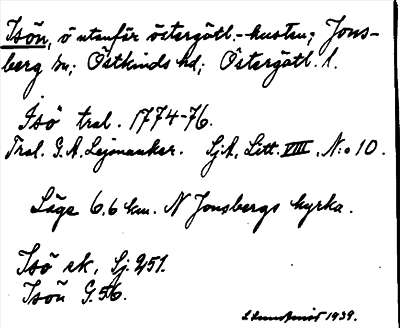 Isön, ö utanför östergötl.-kusten; Jons-
berg sn; Östkinds hd; Östergötl. l.
Isö tral. 1774-76.
Tral. G. A. Lejonanker. Sj.A. Litt. VIII, N:o 10.
Läge 6,6 km. N Jonsbergs kyrka.
Isö ek, Sj. 251.
Isön G. 56.
1939.